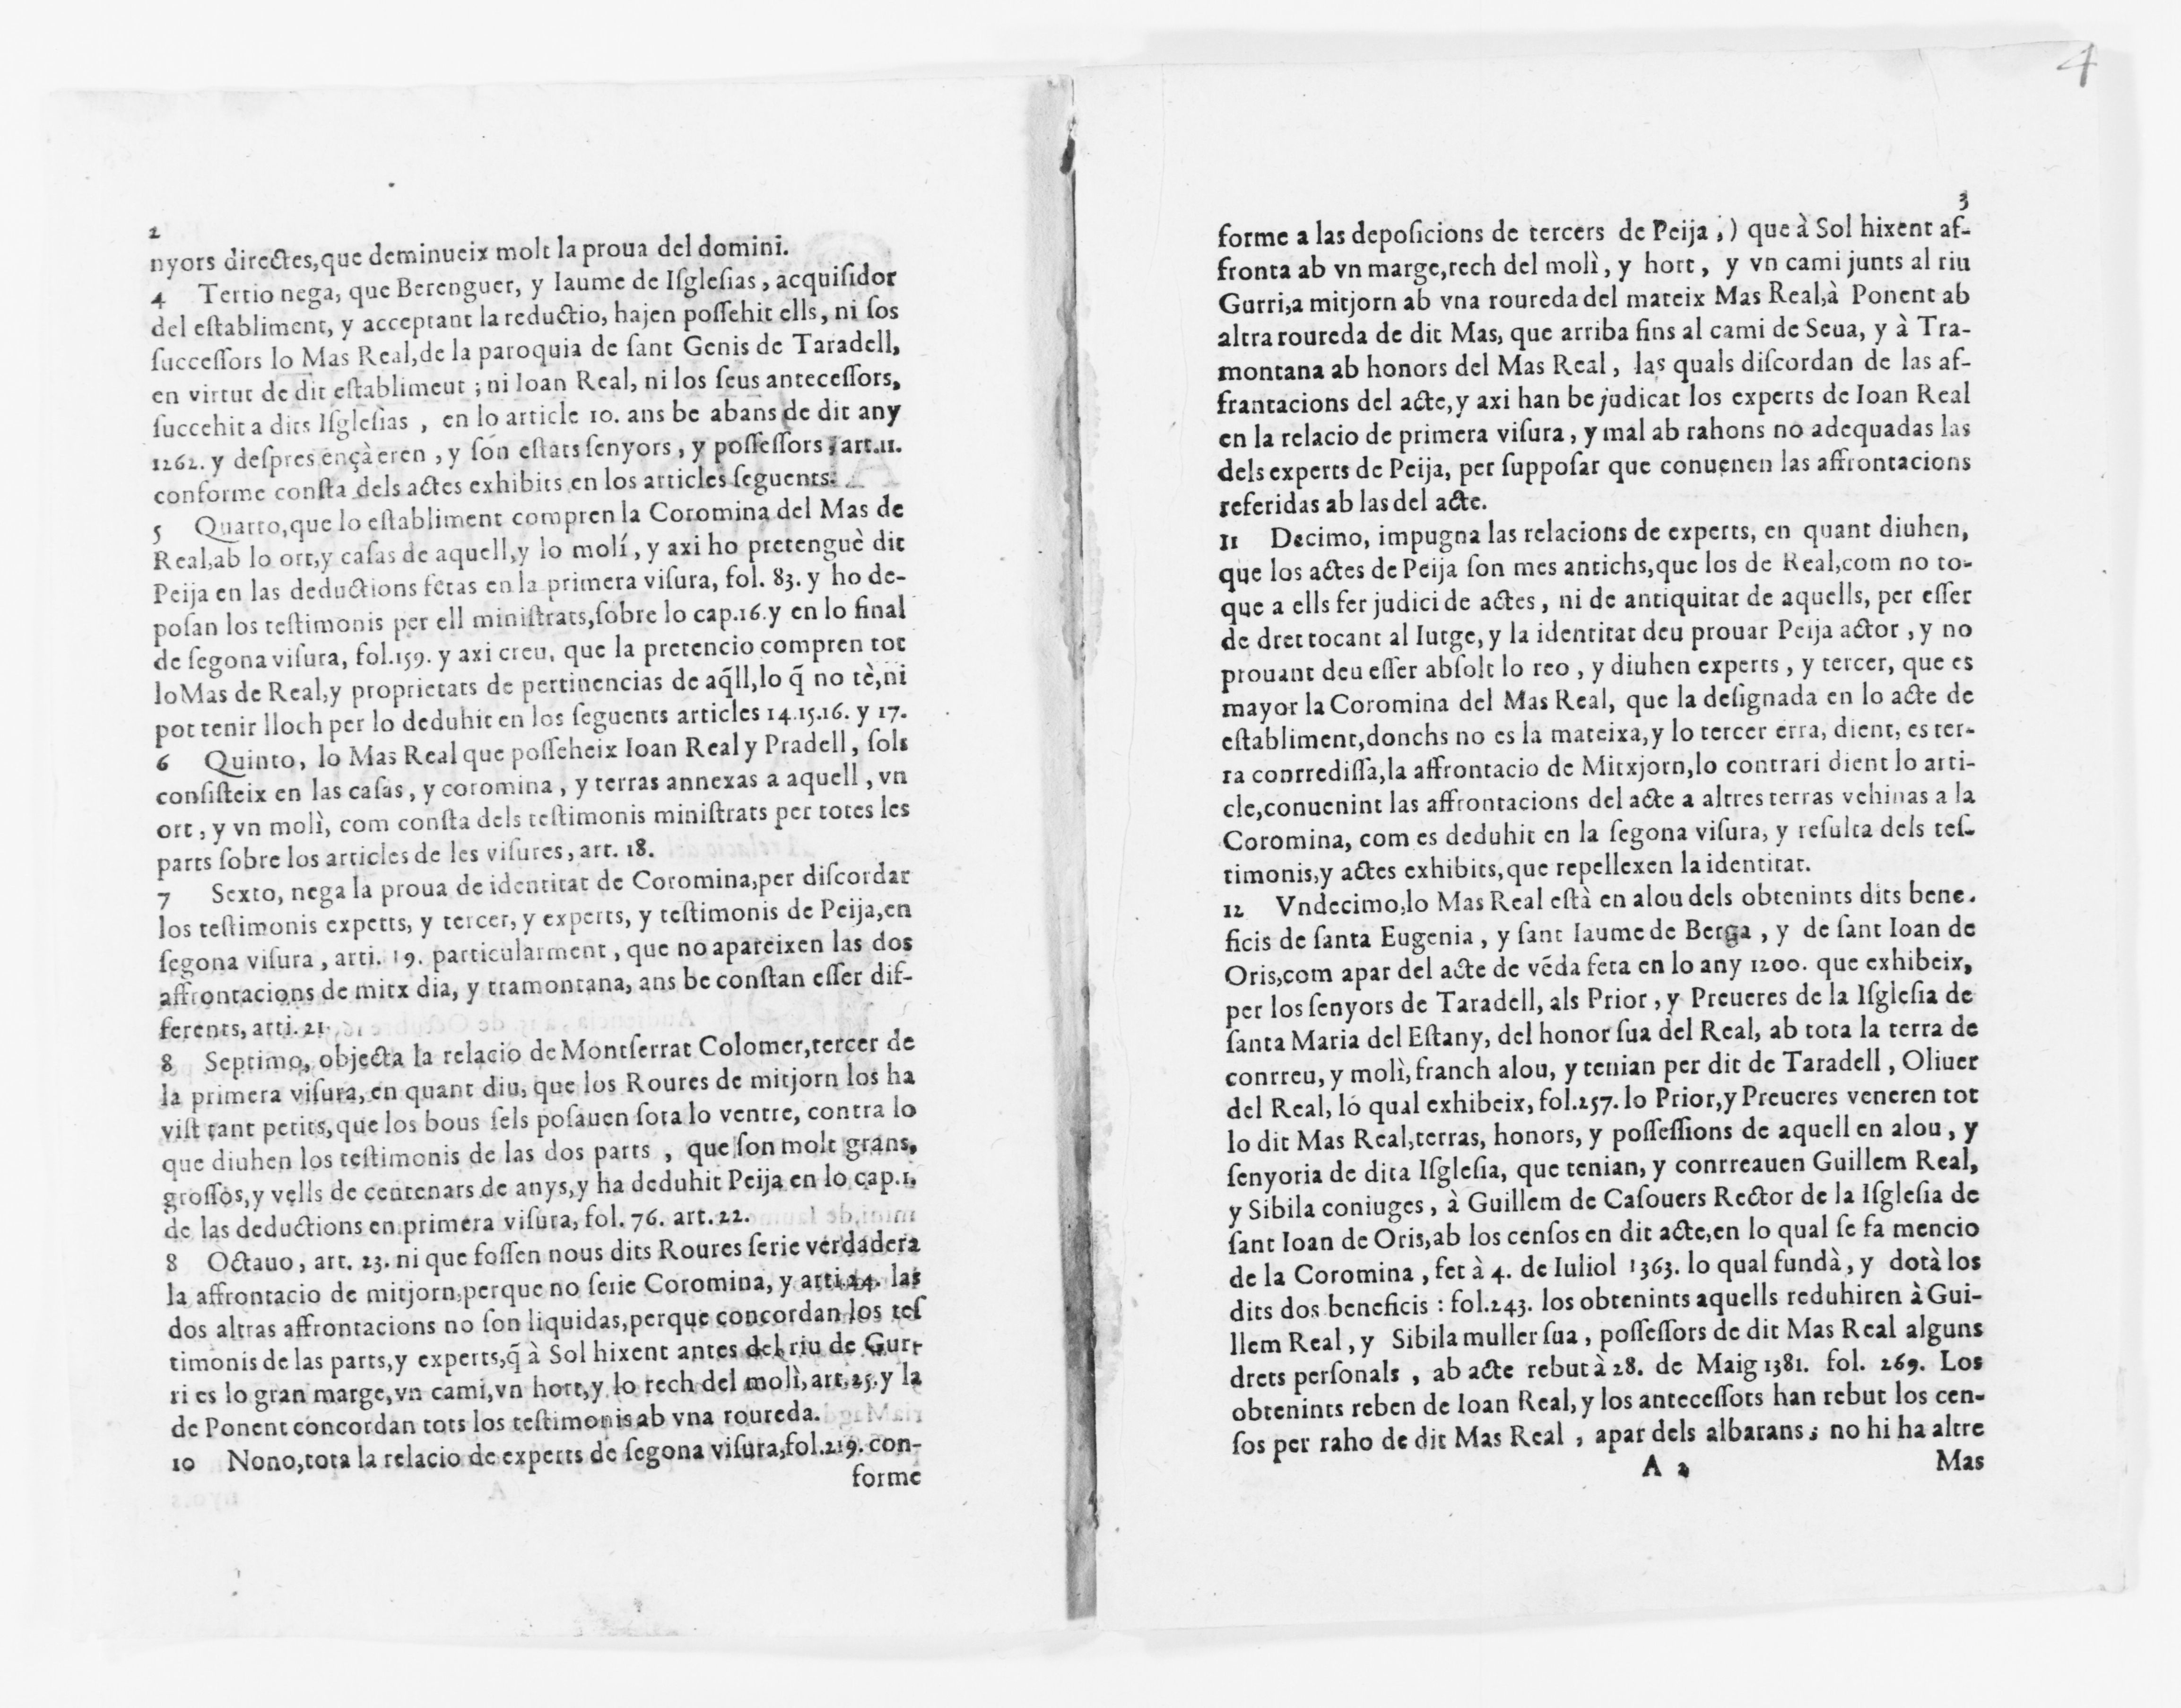 2
nyors directes,que deminueix molt la proua del domini.
4 Tertio nega, que Berenguer, y Iaume de Iſgleſias, acquiſidor
del eſtabliment, y acceptant la reductio, hajen poſſehit ells, ni ſos
ſucceſſors lo Mas Real,de la paroquia de ſant Genis de Taradell,
en virtut de dit eſtablimeut ; ni Ioan Real, ni los ſeus anteceſſors,
ſuccehit a dits Iſgleſias , en lo article 10. ans be abans de dit any
1262. y deſpres ençà eren , y ſón eſtats ſenyors , y poſſeſſors , art.11.
conforme conſta dels actes exhibits en los articles ſeguents.
5 Quarto,que lo eſtabliment compren la Coromina del Mas de
Real,ab lo ort,y caſas de aquell,y lo molí , y axi ho pretenguè dit
Peija en las deductions fetas en la primera viſura, fol. 83. y ho de-
poſan los teſtimonis per ell miniſtrats,ſobre lo cap.16.y en lo final
de ſegona viſura, fol.159. y axi creu, que la pretencio compren tot
lo Mas de Real,y proprietats de pertinencias de aq̃ll,lo q̃ no tè,ni
pot tenir lloch per lo deduhit en los ſeguents articles 14.15.16. y 17.
6 Quinto, lo Mas Real que poſſeheix Ioan Real y Pradell , ſols
conſiſteix en las caſas , y coromina , y terras annexas a aquell , vn
ort , y vn molì, com conſta dels teſtimonis miniſtrats per totes les
parts ſobre los articles de les viſures, art. 18.
7 Sexto, nega la proua de identitat de Coromina,per diſcordar
los teſtimonis expetts, y tercer, y experts, y teſtimonis de Peija,en
ſegona viſura , arti. 19. particularment , que no apareixen las dos
affrontacions de mitx dia, y tramontana, ans be conſtan eſſer dif-
ferents, arti. 21.
8 Septimo, objecta la relacio de Montſerrat Colomer,tercer de
la primera viſura, en quant diu, que los Roures de mitjorn los ha
viſt tant petits,que los bous ſels poſauen ſota lo ventre, contra lo
que diuhen los teſtimonis de las dos parts , que ſon molt grans,
groſſos,y vells de centenars de anys,y ha deduhit Peija en lo cap.1.
de las deductions en primera viſura, fol. 76. art. 22.
8 Octauo , art. 23. ni que foſſen nous dits Roures ſerie verdadera
la affrontacio de mitjorn,perque no ſerie Coromina, y arti.24. las
dos altras affrontacions no ſon liquidas,perque concordan los teſ
timonis de las parts,y experts,q̃ à Sol hixent antes del riu de Gur-
ri es lo gran marge,vn cami,vn hort,y lo rech del molì,art.25.y la
de Ponent concordan tots los teſtimonis ab vna roureda.
10 Nono,tota la relacio de experts de ſegona viſura,fol.219. con-
forme
4
3
forme a las depoſicions de tercers de Peija ,) que à Sol hixent af-
fronta ab vn marge,rech del molì , y hort , y vn cami junts al riu
Gurri,a mitjorn ab vna roureda del mateix Mas Real,à Ponent ab
altra roureda de dit Mas, que arriba fins al cami de Seua, y à Tra-
montana ab honors del Mas Real , las quals diſcordan de las af-
frantacions del acte,y axi han be judicat los experts de Ioan Real
en la relacio de primera viſura , y mal ab rahons no adequadas las
dels experts de Peija, per ſuppoſar que conuenen las affrontacions
referidas ab las del acte.
11 Decimo, impugna las relacions de experts, en quant diuhen,
que los actes de Peija ſon mes antichs,que los de Real,com no to-
que a ells fer judici de actes , ni de antiquitat de aquells, per eſſer
de dret tocant al Iutge, y la identitat deu prouar Peija actor , y no
prouant deu eſſer abſolt lo reo , y diuhen experts , y tercer, que es
mayor la Coromina del Mas Real, que la deſignada en lo acte de
eſtabliment,donchs no es la mateixa, y lo tercer erra, dient, es ter-
ra conrrediſſa,la affrontacio de Mitxjorn,lo contrari dient lo arti-
cle,conuenint las affrontacions del acte a altres terras vehinas a la
Coromina, com es deduhit en la ſegona viſura, y reſulta dels teſ-
timonis,y actes exhibits,que repellexen la identitat.
12 Vndecimo,lo Mas Real eſtà en alou dels obtenints dits bene.
ficis de ſanta Eugenia , y ſant Iaume de Berga , y de ſant Ioan de
Oris,com apar del acte de vẽda feta en lo any 1200. que exhibeix,
per los ſenyors de Taradell, als Prior , y Preueres de la Iſgleſia de
ſanta Maria del Eſtany, del honor ſua del Real, ab tota la terra de
conrreu, y molì, franch alou, y tenian per dit de Taradell , Oliuer
del Real, ló qual exhibeix, fol.257. lo Prior,y Preueres veneren tot
lo dit Mas Real,terras, honors, y poſſeſſions de aquell en alou , y
ſenyoria de dita Iſgleſia, que tenian, y conrreauen Guillem Real,
y Sibila coniuges , à Guillem de Caſouers Rector de la Iſgleſia de
ſant Ioan de Oris,ab los cenſos en dit acte,en lo qual ſe fa mencio
de la Coromina , fet à 4. de Iuliol 1363. lo qual fundà , y dotà los
dits dos beneficis : fol.243. los obtenints aquells reduhiren à Gui-
llem Real , y Sibila muller ſua , poſſeſſors de dit Mas Real alguns
drets perſonals , ab acte rebut à 28. de Maig 1381. fol. 269. Los
obtenints reben de Ioan Real, y los anteceſſots han rebut los cen-
ſos per raho de dit Mas Real , apar dels albarans ; no hi ha altre
A 2 Mas